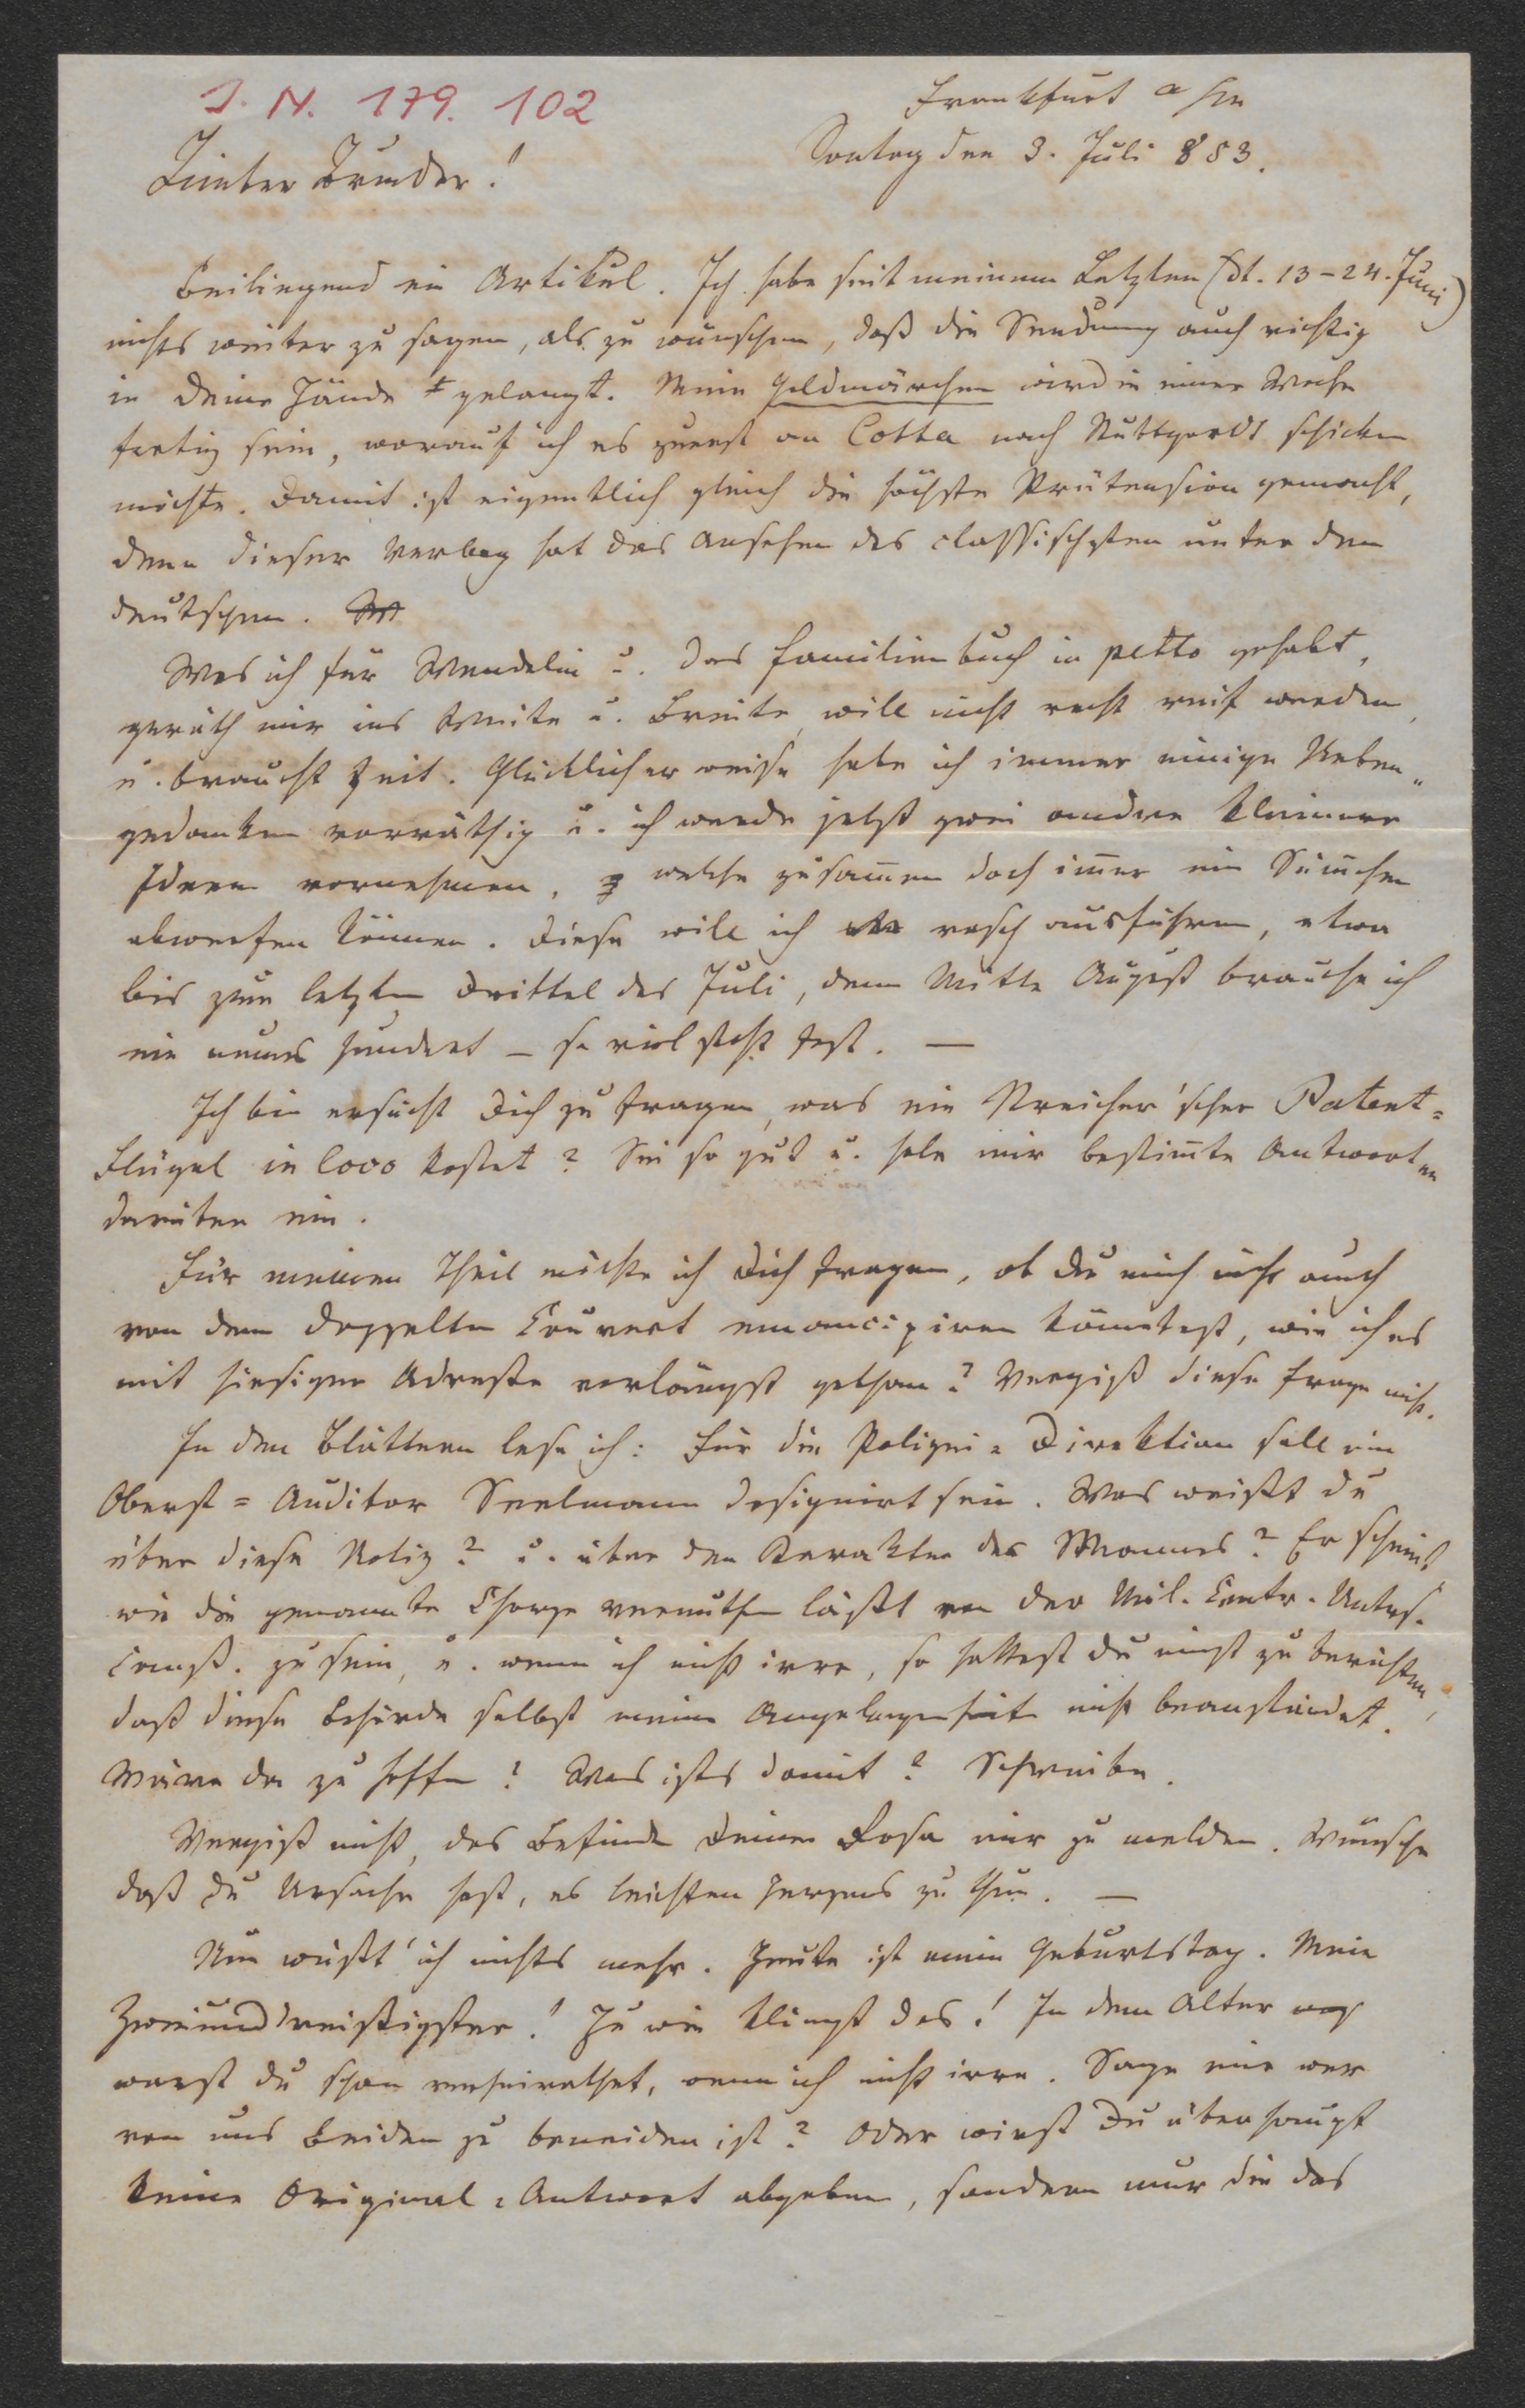 I. N. 179. 102
Frankfurt a/m
Sontag den 3. Juli 853.
Liebster Bruder!
Beiliegend ein Artikel. Ich habe seit meinem Letzten (dt. 13–24. Juni)
nichts weiter zu sagen, als zu wünschen, daß die Sendung auch richtig
in Deine Hände gelangt. Mein Geldmärchen wird in einer Woche
fertig sein, worauf ich es zuerst an Cotta nach Stuttgardt schicken
möchte. Damit ist eigentlich gleich die höchste Prätension gemacht,
denn dieser Verlag hat das Ansehen des classischsten unter den
deutschen.
Was ich für Wendelin u. das Familienbuch in petto gehabt,
geräth mir ins Weite u. Breite, will nicht recht reif werden,
u. braucht Zeit. Glücklicherweise habe ich immer einige Neben„
gedanken vorräthig u. ich werde jetzt zwei andre kleinere
Ideen vornehmen, welche zusam̅en doch im̅er ein Süm̅chen
abwerfen können. Diese will ich rasch ausführen, etwa
bis zum letzten Drittel des Juli, denn Mitte August brauche ich
ein neues Hundert – so viel steht fest. —
Ich bin ersucht Dich zu fragen, was ein Streicher'scher Patent=
Flügel in loco kostet? Sei so gut u. hole mir bestim̅te Antworten
darüber ein.
Für meinen Theil möchte ich Dich fragen, ob Du mich nicht auch
von dem doppelten Couvert emancipiren könntest, wie ich es
mit hiesiger Adresse vorlängst gethan? Vergiß diese Frage nicht.
In den Blättern lese ich: Für die Polizei=Direktion soll ein
Oberst=Auditor Seelmann designirt sein. Was weißt du
über diese Notiz? u. über den Karakter des Mannes? Er scheint
wie die genannte Charge vermuthen läßt von der Mil. Centr. Unters.
Comß. zu sein, u. wenn ich nicht irre, so hattest du einst zu berichten,
daß diese Behörde selbst meine Angelegenheit nicht beanständet.
Wäre da zu hoffen? Was ists damit? Schreibe.
Vergiß nicht, das Befinden Deiner Rosa mir zu melden. Wünsche
daß du Ursache hast, es leichten Herzens zu thun. —
Nun wüßt' ich nichts mehr. Heute ist mein Geburtstag. Mein
Zweiunddreißigster! Hu wie klingt das! In dem Alter
warst du schon verheirathet, wenn ich nicht irre. Sage mir wer
von uns Beiden zu beneiden ist? Oder wirst Du überhaupt
keine Original=Antwort abgeben, sondern nur die das